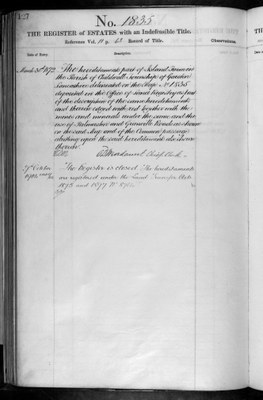 No. 1835
THE REGISTER of ESTATES with an Indefeasible Title.
Reference Vol. p. 62 Record of Title.
Date of Entry.
Description.
Observations.
The hereditaments part of
the Parish of Childwall Township of Garston
Lancashire delineated on the Map No. 1835
deposited in the Office of Land Registry as part
of the description of the same hereditaments
and thereto edged with red Together with the
mines and minerals under the same and the
use of and Granville Roads as shown
in the said Map and of the Common passage
abutting upon the said hereditaments as shown
thereon
Chief Clerk
7th October
1902
The Register is closed. The hereditaments
are registered under the Land Transfer Acts
1875 and 1897